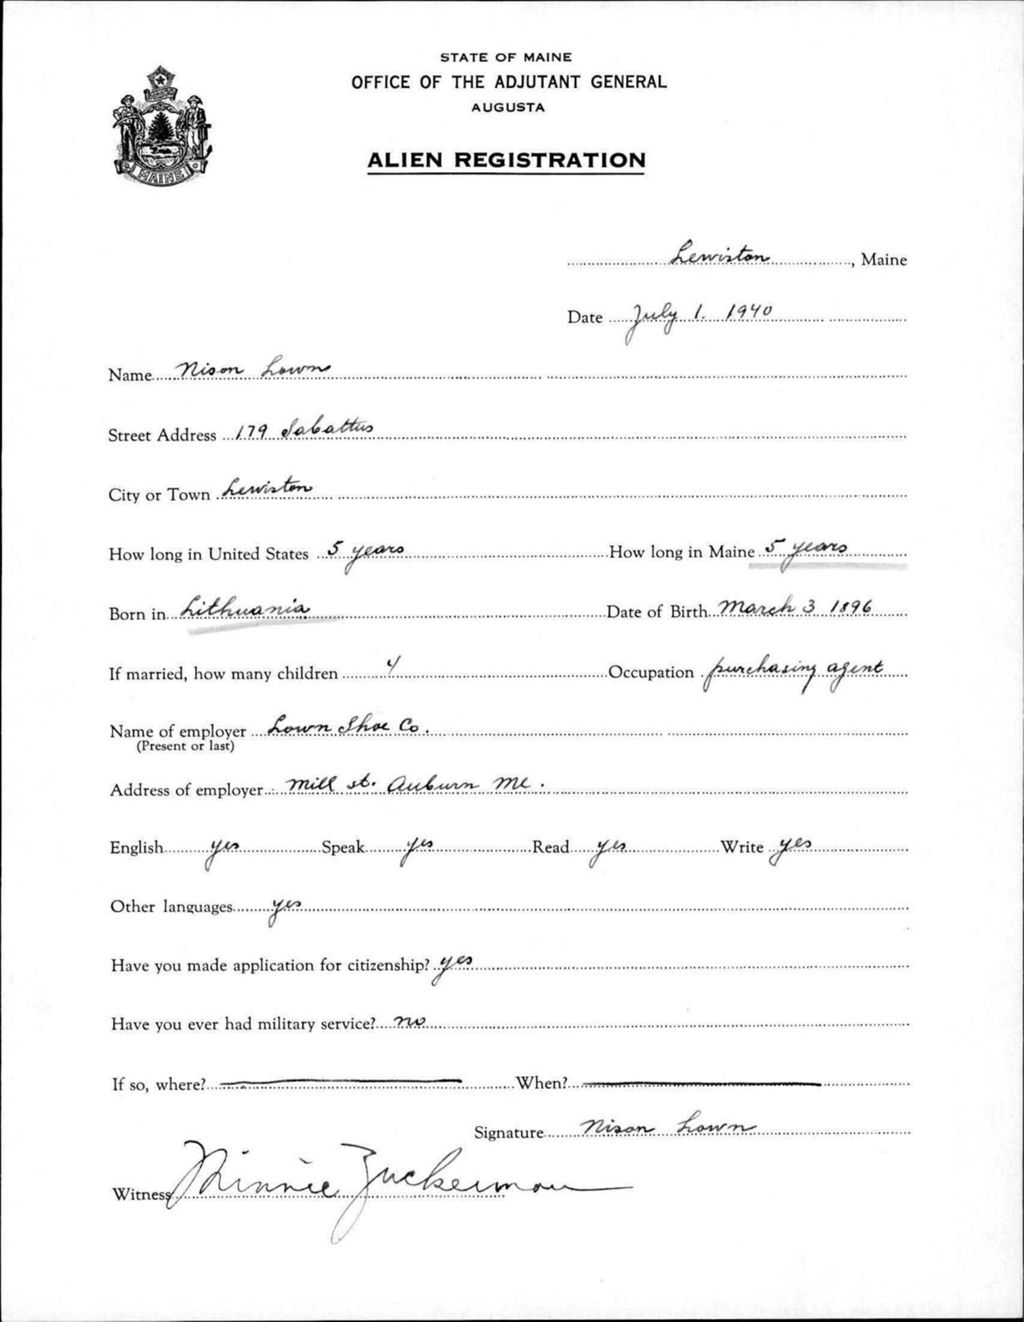 STATE OF MAINE
OFFICE OF THE ADJUTANT GENERAL
AUGUSTA
MAINE
ALIEN REGISTRATION
Lewiston, Maine
Date July 1. 1940
Name Nison Lown
Street Address 179 Sabattus
City or Town Lewiston
How long in United States 5 years How long in Maine 5 years
Born in Lithuania Date of Birth March 3 1896
If married, how many children 4 Occupation purchasing agent
Name of employer Lown Shoe Co.
(Present or last)
Address of employer Mill st. Auburn Me.
English yes Speak yes Read yes Write yes
Other languages yes
Have you made application for citizenship? yes
Have you ever had military service? no
If so, where? When?
Signature Nison Lown
Witness Minnie Zuckerman